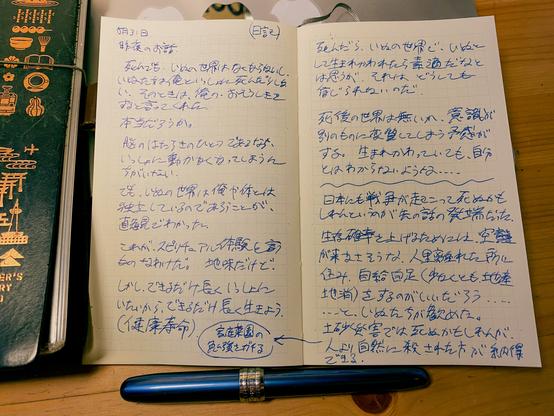 5月31日 (日記)
昨夜のお話
死んでも、いぬの世界はなくならないし、
いぬたちは俺といっしょに死んだりしな
い。そのときは、俺の
すると言ってくれた
本当だろうか。
脳のはたらきのひとつであるなら、
いっしょに動かなくなってしまうん
じゃないか。
でも、いぬの世界は俺や体とは
独立しているのであろうことが、
直観でわかった。
これが、スピリチュアルな体験と言う
ものなわけだ。地味だけど。
しかし、できるだけ長くいっしょに
いたいから、できるだけ長く生きよう。
(健康寿命)
家庭菜園の
勉強をする
死んだら、いぬの世界で、いぬと
して生まれかわれたら素適だなと
は思うが、それは、どうしても
信じられないのだ。
死後の世界は無いか、意識が
別のものに変質してしまう予感が
する。生まれかわっていても、自分
とはわからないような……
日本にも戦争が起こって死ぬかも
しれんというのが矢の話の発端だった。
生存確率を上げるためには、空襲
が来なさそうな、人里離れた所に
住み、自給自足(少なくとも地産
地消)をするのがいいだろう……
……と、いぬたちが勧めた。
土砂災害では死ぬかもしれんが、
人より自然に殺された方が納得
できる。